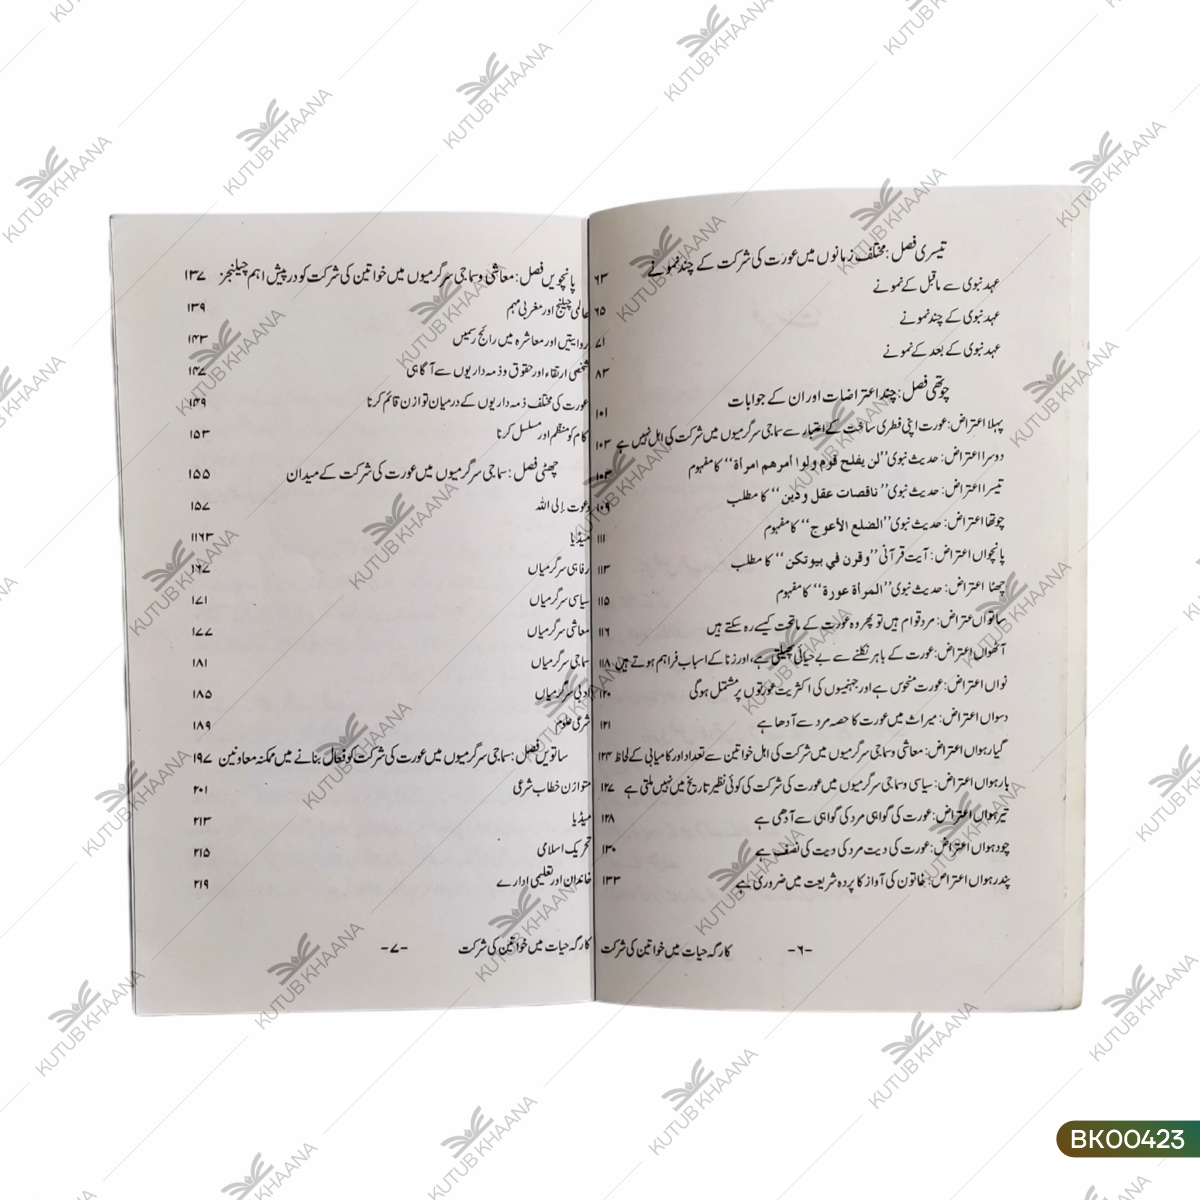 تیسری فصل: مختلف زمانوں میں عورت کی شرکت کے چند نمونے ۶۳
عہد نبوی سے ماقبل کے نمونے
عہد نبوی کے چند نمونے ۶۵
عہد نبوی کے بعد کے نمونے ۷۱
۸۳
چوتھی فصل: چند اعتراضات اور ان کے جوابات ۱۰۱
پہلا اعتراض: عورت اپنی فطری ساخت کے اعتبار سے سماجی سرگرمیوں میں شرکت کی اہل نہیں ہے ۱۰۳
دوسرا اعتراض: حدیث نبوی ’’لن یفلح قوم ولوا أمرهم امرأة‘‘ کا مفہوم ۱۰۳
تیسرا اعتراض: حدیث نبوی ’’ناقصات عقل ودین‘‘ کا مطلب ۱۰۹
چوتھا اعتراض: حدیث نبوی ’’الضلع الأعوج‘‘ کا مفہوم ۱۱۱
پانچواں اعتراض: آیت قرآنی ’’وقرن في بيوتكن‘‘ کا مطلب ۱۱۳
چھٹا اعتراض: حدیث نبوی ’’المرأة عورة‘‘ کا مفہوم ۱۱۵
ساتواں اعتراض: مرد قوام ہیں تو پھر وہ عورت کے ماتحت کیسے رہ سکتے ہیں ۱۱۶
آٹھواں اعتراض: عورت کے باہر نکلنے سے بے حیائی پھیلتی ہے، اور زنا کے اسباب فراہم ہوتے ہیں ۱۱۸
نواں اعتراض: عورت منحوس ہے اور جہنمیوں کی اکثریت عورتوں پر مشتمل ہوگی ۱۲۰
دسواں اعتراض: میراث میں عورت کا حصہ مرد سے آدھا ہے ۱۲۱
گیارہواں اعتراض: معاشی وسماجی سرگرمیوں میں شرکت کی اہل خواتین سے تعداد اور کامیابی کے لحاظ ۱۲۴
بارہواں اعتراض: سیاسی وسماجی سرگرمیوں میں عورت کی شرکت کی کوئی نظیر تاریخ میں نہیں ملتی ہے ۱۲۷
تیرہواں اعتراض: عورت کی گواہی مرد کی گواہی سے آدھی ہے ۱۲۸
چودہواں اعتراض: عورت کی دیت مرد کی دیت کی نصف ہے ۱۳۰
پندرہواں اعتراض: خاتون کی آواز کا پردہ شریعت میں ضروری ہے ۱۳۳
-۶- کارگہ حیات میں خواتین کی شرکت
پانچویں فصل: معاشی وسماجی سرگرمیوں میں خواتین کی شرکت کو درپیش اہم چیلنجز ۱۳۷
عالمی چیلنج اور مغربی مہم ۱۳۹
روایتیں اور معاشرہ میں رائج رسمیں ۱۴۳
شخصی ارتقاء اور حقوق وذمہ داریوں سے آگاہی ۱۴۷
عورت کی مختلف ذمہ داریوں کے درمیان توازن قائم کرنا ۱۴۹
کام کو منظم اور مسلسل کرنا ۱۵۳
چھٹی فصل: سماجی سرگرمیوں میں عورت کی شرکت کے میدان ۱۵۵
دعوت إلی اللہ ۱۵۷
میڈیا ۱۱۶۳
رفاہی سرگرمیاں ۱۶۷
سیاسی سرگرمیاں ۱۷۱
معاشی سرگرمیاں ۱۷۷
سماجی سرگرمیاں ۱۸۱
ادبی سرگرمیاں ۱۸۵
شرعی علوم ۱۸۹
ساتویں فصل: سماجی سرگرمیوں میں عورت کی شرکت کو فعال بنانے میں ممکنہ معاونین ۱۹۷
متوازن خطاب شرعی ۲۰۱
میڈیا ۲۱۳
تحریک اسلامی ۲۱۵
خاندان اور تعلیمی ادارے ۲۱۹
کارگہ حیات میں خواتین کی شرکت -۷-
KUTUB KHAANA
BK00423